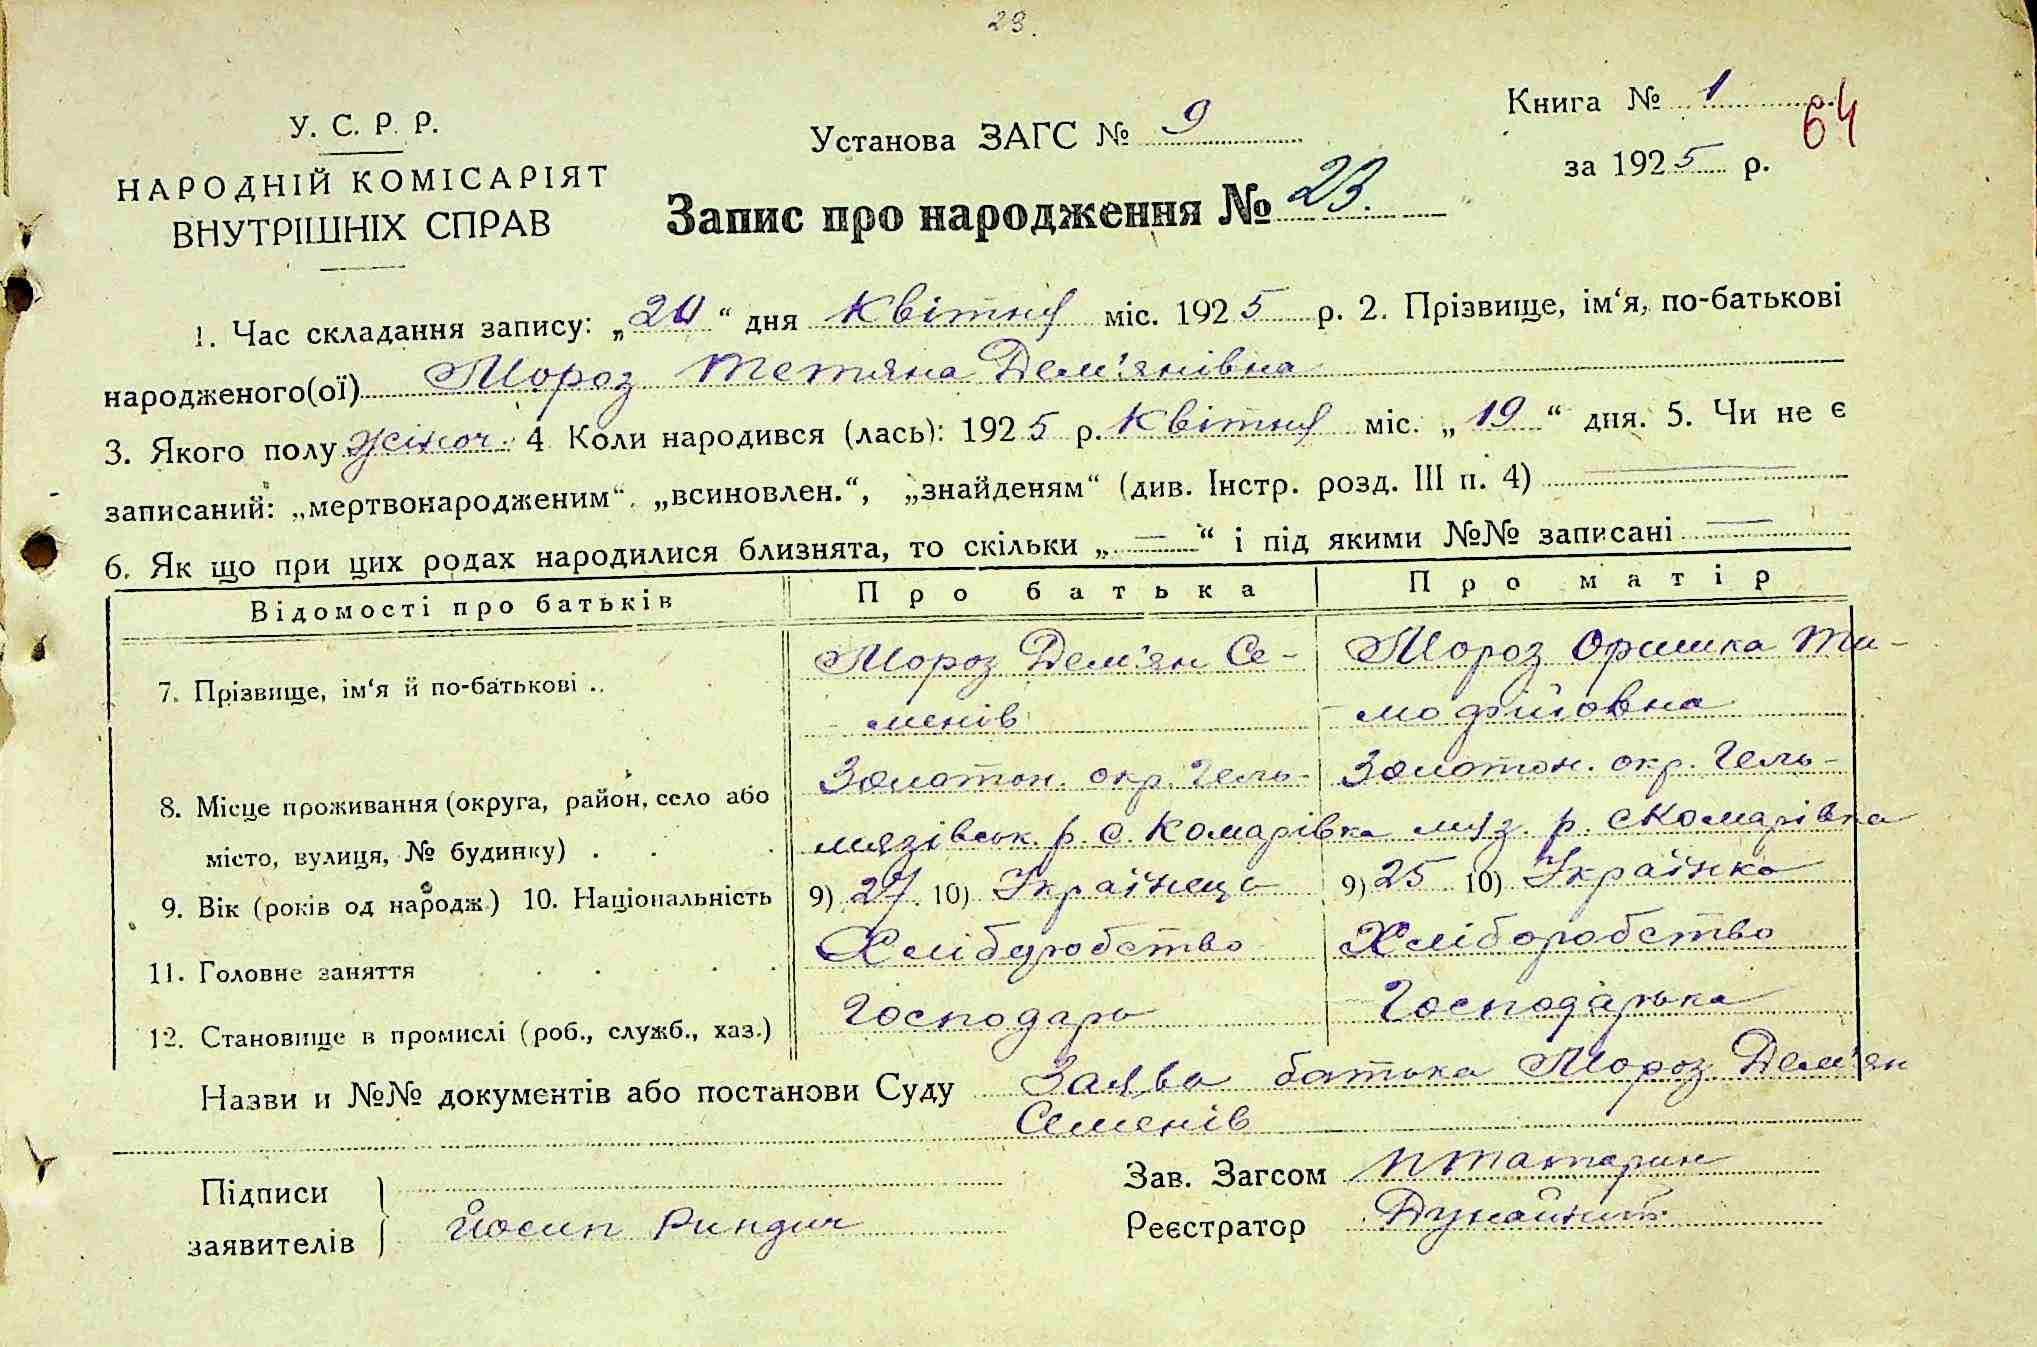 23.
Книга № 1
64
У. С. Р. Р.
Установа ЗАГС № 9
за 1925 р.
НАРОДНІЙ КОМІСАРІЯТ
ВНУТРІШНІХ СПРАВ
Запис про народження № 23.
1. Час складання запису: „20“ дня Квітня міс. 1925 р. 2. Прізвище, ім‘я, по-батькові
народженого(ої) Мороз Тетяна Дем'янівна
3. Якого полу жіноч. 4 Коли народився (лась): 1925 р. Квітня міс. „19“ дня. 5. Чи не є
записаний: „мертвонародженим“, „всиновлен.“, „знайденям“ (див. Інстр. розд. III п. 4) —
6. Як що при цих родах народилися близнята, то скільки „—“ і під якими №№ записані —
Відомості про батьків Про батька Про матір
7. Прізвище, ім‘я й по-батькові .. Мороз Дем'ян Се- Мороз Оришка Ти-
менів мофійовна
Золотон. окр. Гель- Золотон. окр. Гель-
8. Місце проживання (округа, район, село або
мязівськ. р. с. Комарівка мяз. р. с Комарівка
місто, вулиця, № будинку) . . .
9. Вік (років од народж.) 10. Національність 9) 27 10) Українець 9) 25 10) Українка
11. Головне заняття . . . . Хліборобство Хліборобство
12. Становище в промислі (роб., служб., хаз.) Господарь Господарька
Назви и №№ документів або постанови Суду Заява батька Мороз Дем'ян
Семенів
Підписи
заявителів Йосип Риндич
Зав. Загсом
Реєстратор Дунайний